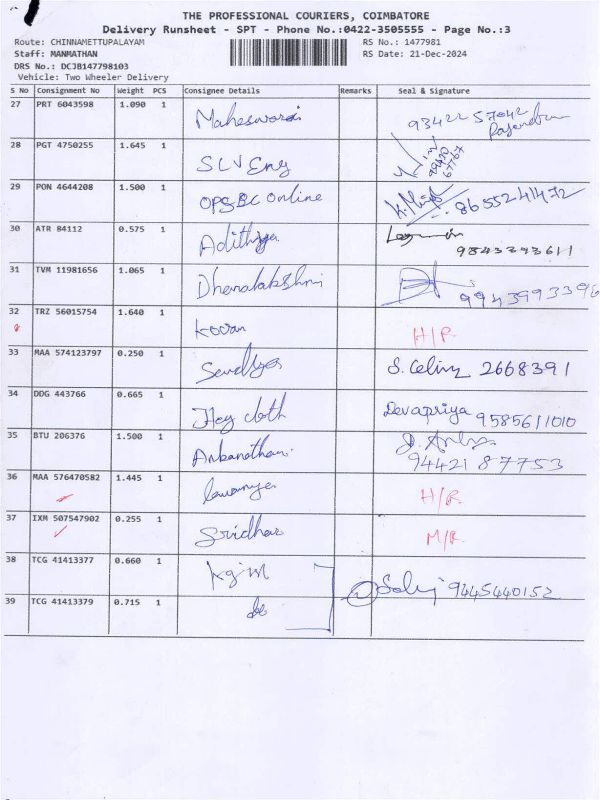 THE PROFESSIONAL COURIERS, COIMBATORE
Delivery Runsheet - SPT - Phone No.:0422-3505555 - Page No.:3
Route: CHINNAMETTUPALAYAM RS No.: 1477981
Staff: MANMATHAN RS Date: 21-Dec-2024
DRS No.: DCJB147798103
Vehicle: Two Wheeler Delivery
S No Consignment No Weight PCS Consignee Details Remarks Seal & Signature
27 PRT 6043598 1.090 1 Maheswari 93422 57042
Rajendran
28 PGT 4750255 1.645 1 SLV Eng
29 PON 4644208 1.500 1 OPSBC online 8655241472
30 ATR 84112 0.575 1 Adithya 9843393611
31 TVM 11981656 1.065 1 Dhanalakshmi 9943993396
32 TRZ 56015754 1.640 1 Kovan H/R
33 MAA 574123797 0.250 1 S. Celin 2668391
34 DDG 443766 0.665 1 Hey cloth Devapriya 9585611010
35 BTU 206376 1.500 1 Anbanathan
94421 87753
36 MAA 576470582 1.445 1 lavanya H/R
37 IXM 507547902 0.255 1 Sridhar M/R
38 TCG 41413377 0.660 1 9445440152
39 TCG 41413379 0.715 1 do